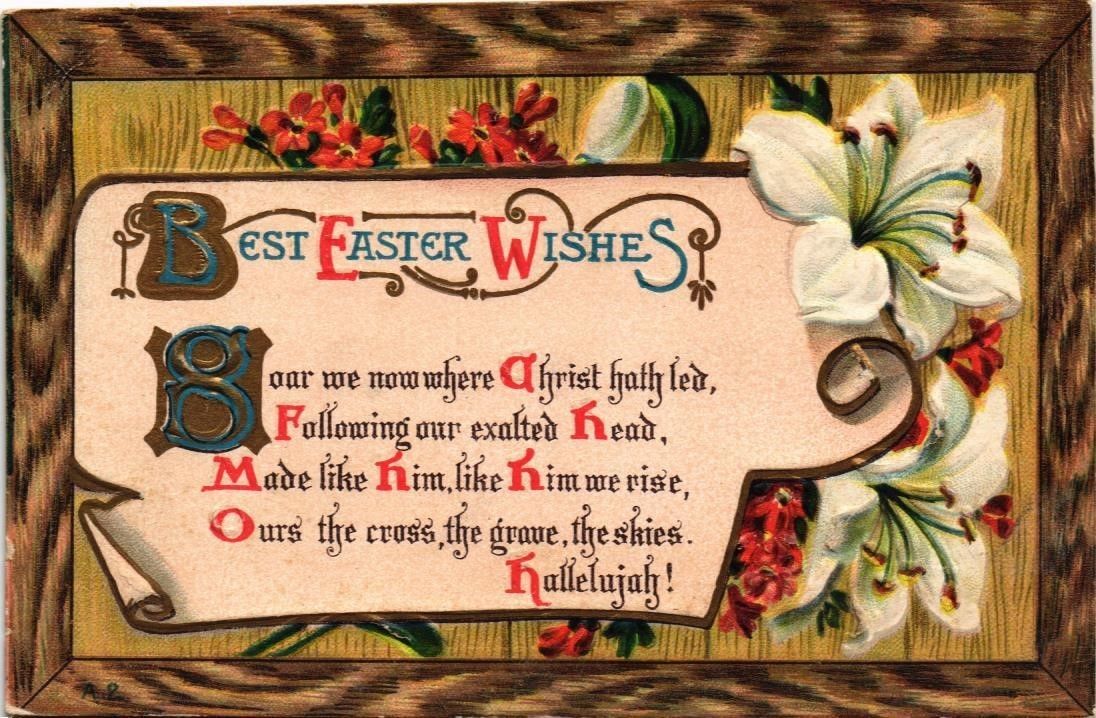 Best Easter Wishes
Soar we now where Christ hath led,
Following our exalted Head,
Made like Him, like Him we rise,
Ours the cross, the grave, the skies.
Hallelujah!